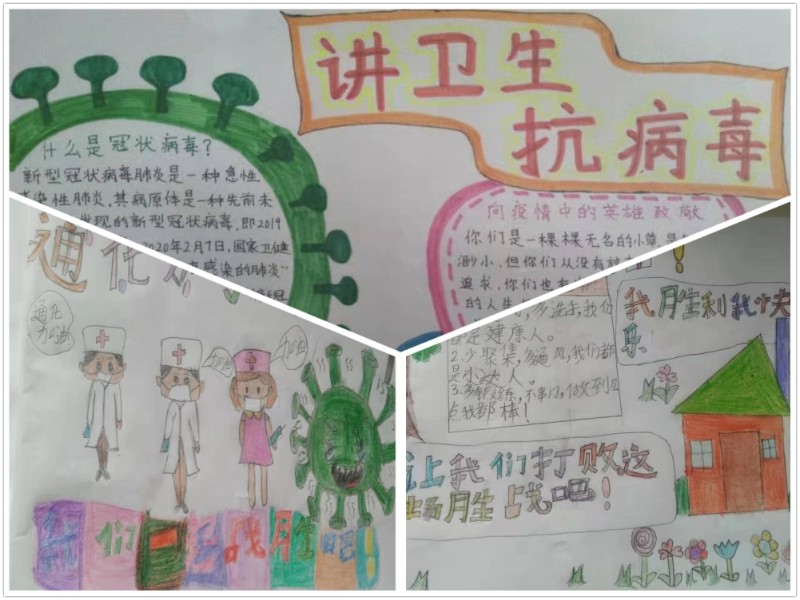 讲卫生
抗病毒
什么是冠状病毒?
新型冠状病毒肺炎是一种急性
感染性肺炎,其病原体是一种先前未
发现的新型冠状病毒,即2019
2020年2月7日,国家卫健
感染的肺炎”
向疫情中的英雄致敬
你们是一棵棵无名的小草,是
渺小,但你们从没有放
追求,你们也有
的人生
通化
通化
加油
加油
加油
们一
战胜
吧!
我胜利我快
乐
多洗手,我们
是健康人。
2.少聚集,多通风,我们都
是小达人。
3.多锻炼,不串门,做到
点我都棒!
让我们打败这
场月生战吧!